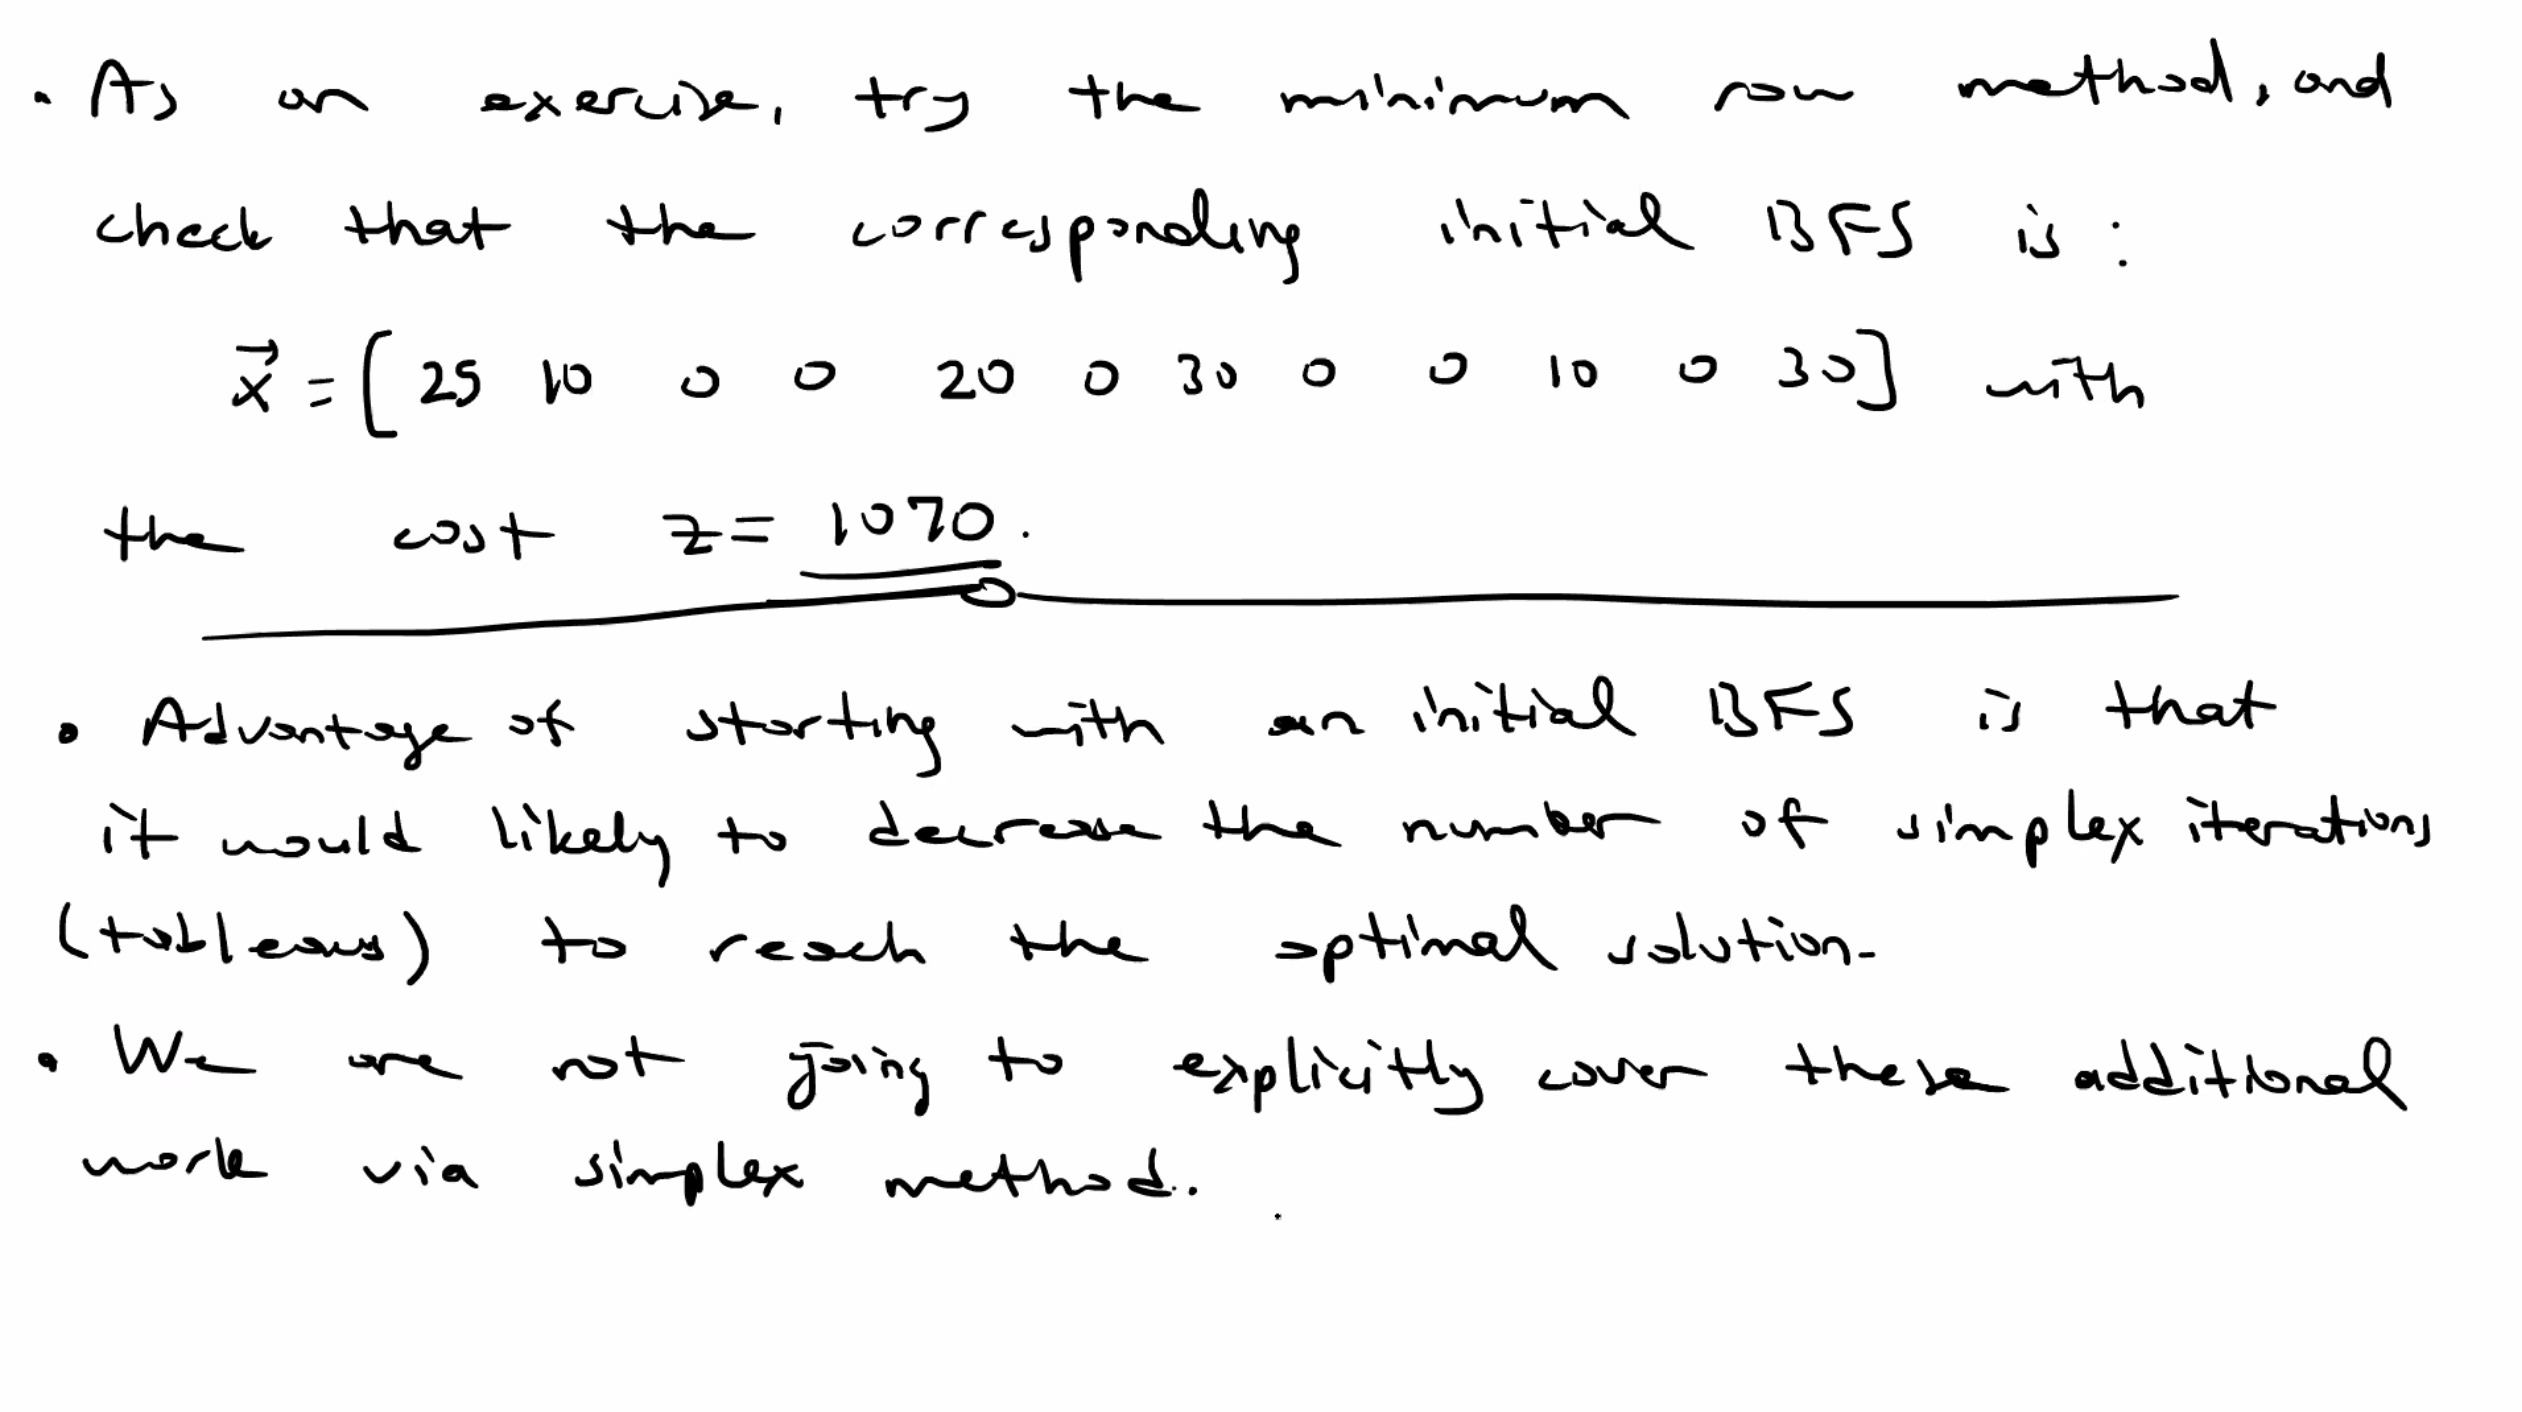 • As an exercise, try the minimum row method, and
check that the corresponding initial BFS is :
x⃗ = [ 25 10 0 0 20 0 30 0 0 10 0 30 ] with
the cost z = 1070 .
• Advantage of starting with an initial BFS is that
it would likely to decrease the number of simplex iterations
(tableaus) to reach the optimal solution.
• We are not going to explicitly cover these additional
work via simplex method.